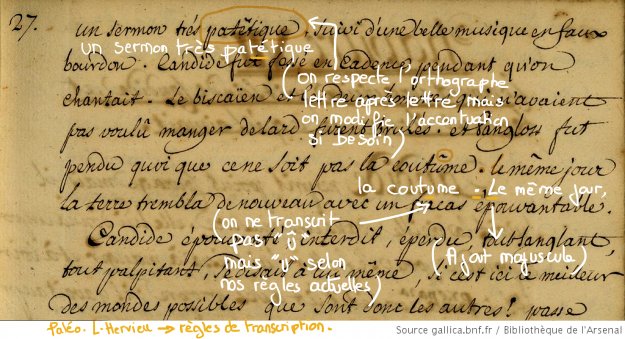 27. un sermon trés patêtique, suivi d'une belle musique en faux
un sermon très patétique
bourdon. Candide fut fessé en Cadence, pendant qu'on
(on respecte l'orthographe
chantait. Le biscaïen et qui n'avaient
lettre après lettre mais
on modifie l'accentuation
pas voulû manger de lard, furent brulés. et Pangloss fut
si besoin)
pendu quoi que ce ne soit pas la coutûme. le même jour
la coutume. Le même jour,
la terre trembla de nouveau avec un fracas épouvantable.
(on ne transcrit
Candide épouvanté, interdit, éperdu, tout sanglant,
pas "û"
mais "u" selon
(Ajout majuscule)
tout palpitant, se disait à lui même, si c'est ici le meilleur
nos règles actuelles)
des mondes possibles que sont donc les autres? passe
Paléo. L. Hervieu → règles de transcription.
Source gallica.bnf.fr / Bibliothèque de l'Arsenal